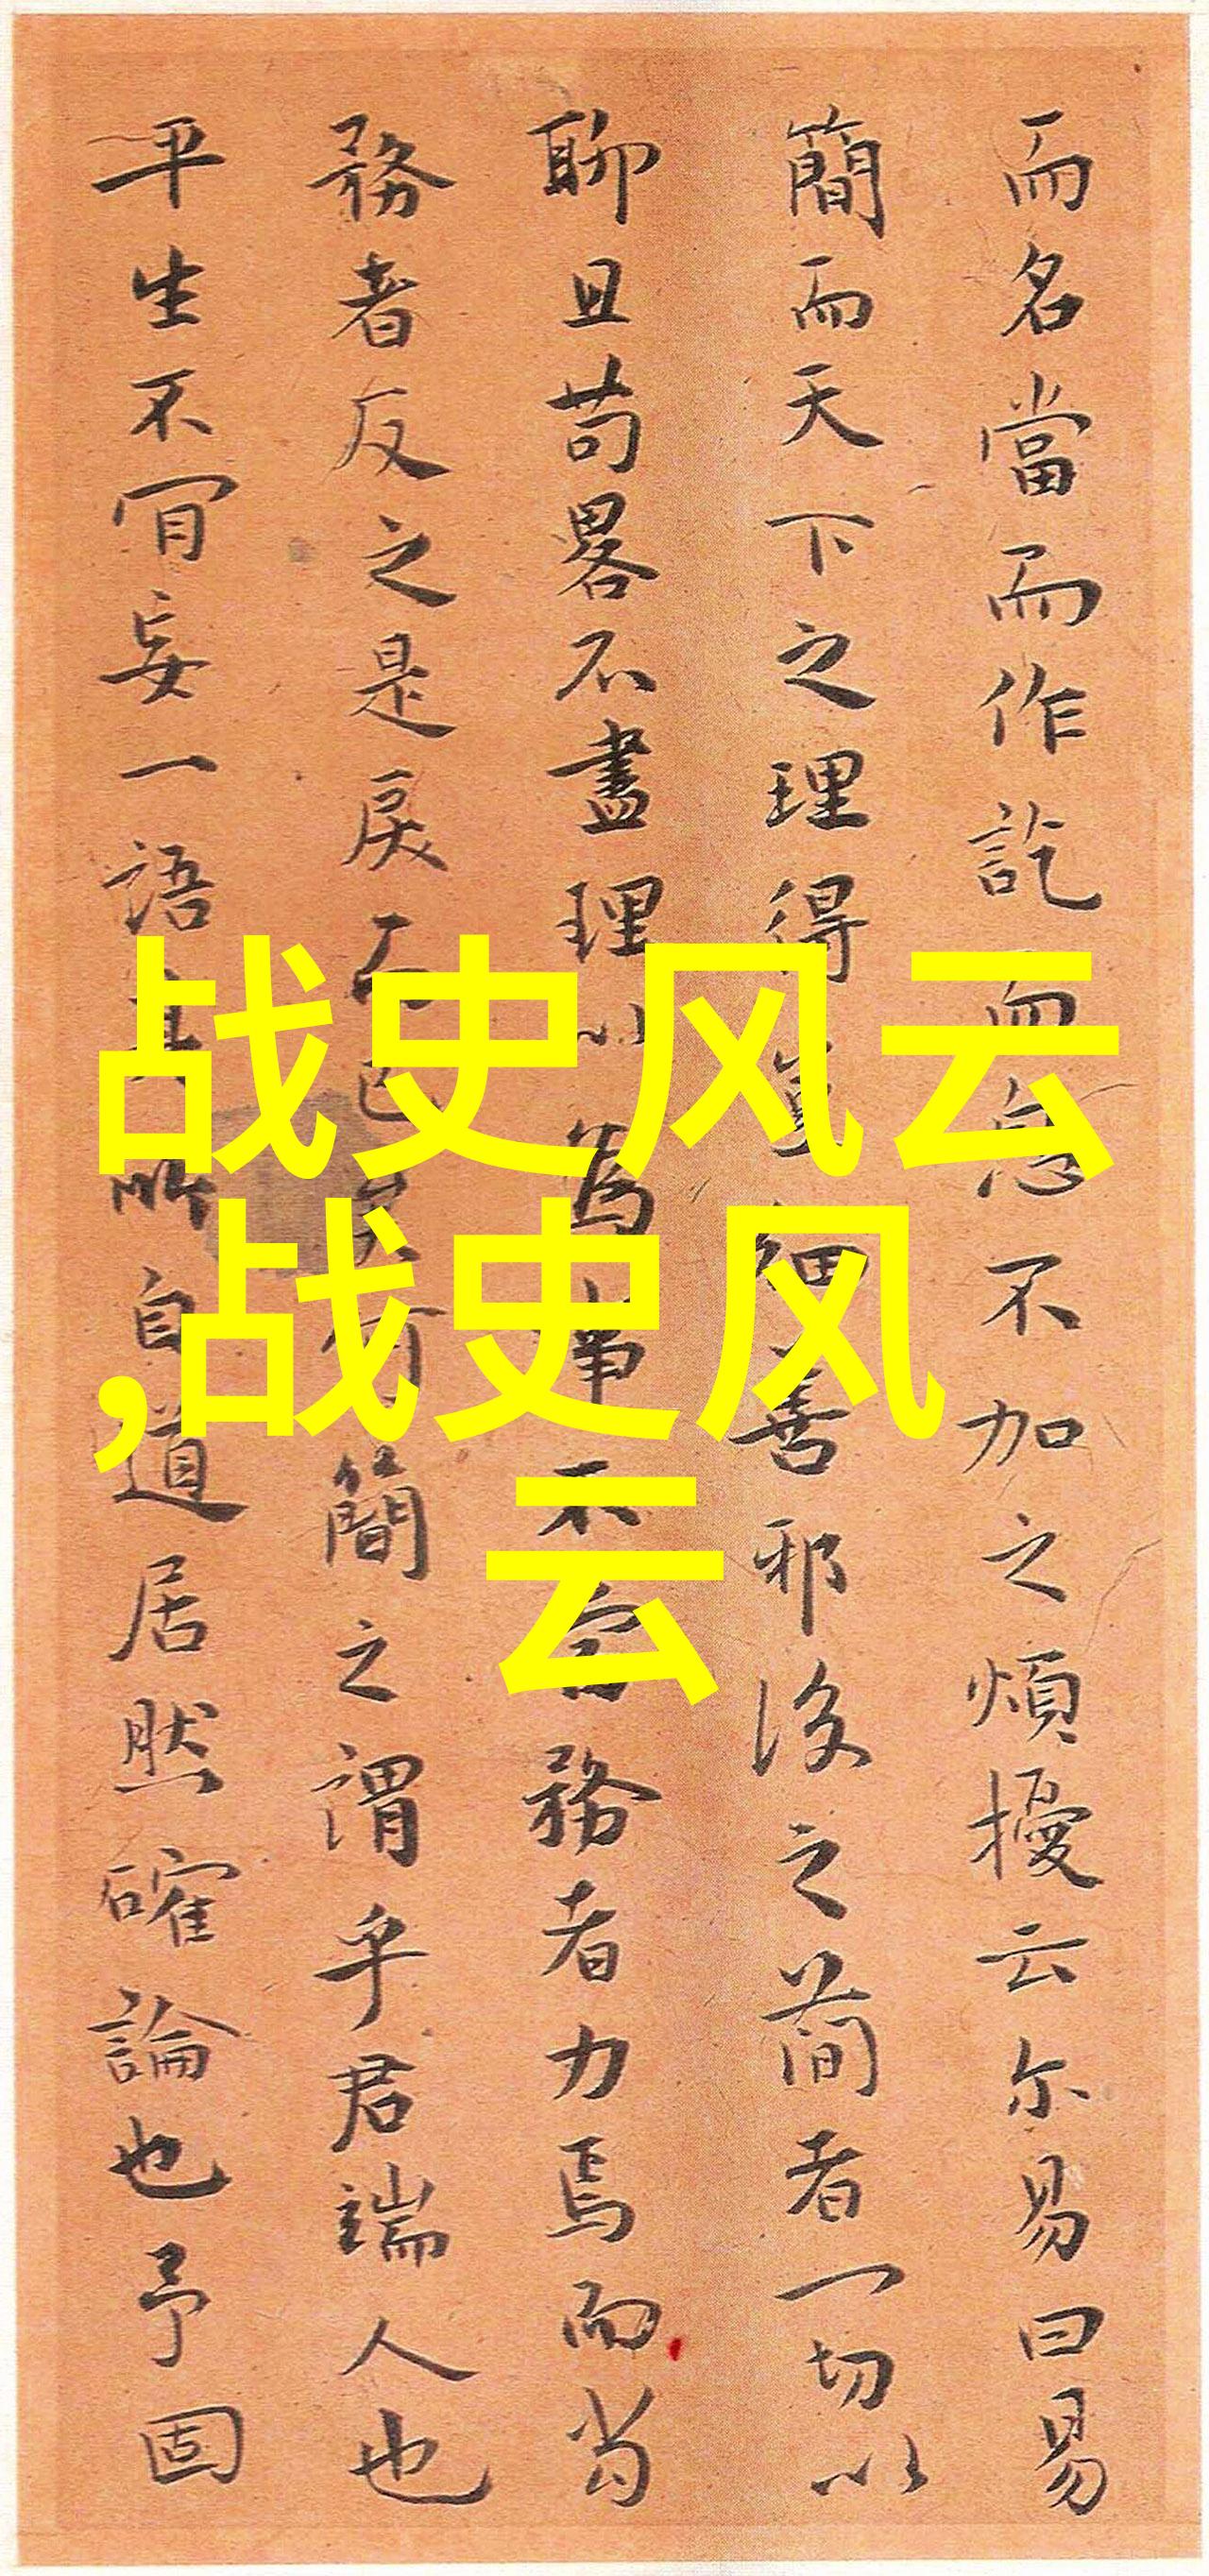 而名當而作訖不加之煩擾云尔易曰易
簡而天下之理得細善邪後之简者一切以
聊且苟畧不盡理以為事不當務者力焉而當
務者反之是戾而已矣簡之謂乎君端人也
平生不肎妄一語其所自道居然確論也予固
战史风云
,战史风
云